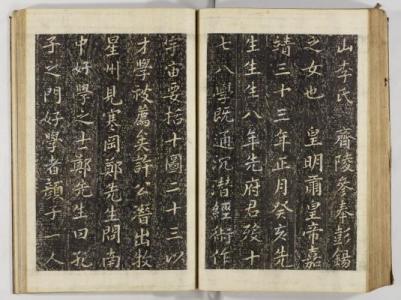 山李氏 齊陵參奉彭錫
之女也 皇明肅皇帝嘉
靖三十三年正月癸亥先
生生生八年先府君歿十
七八學既通沉潜經術作
宇宙要括十圖二十三以
才學被薦矣許公潛出牧
星州見寒岡鄭先生問南
中好學之士鄭先生曰孔
子之門好學者顔子一人